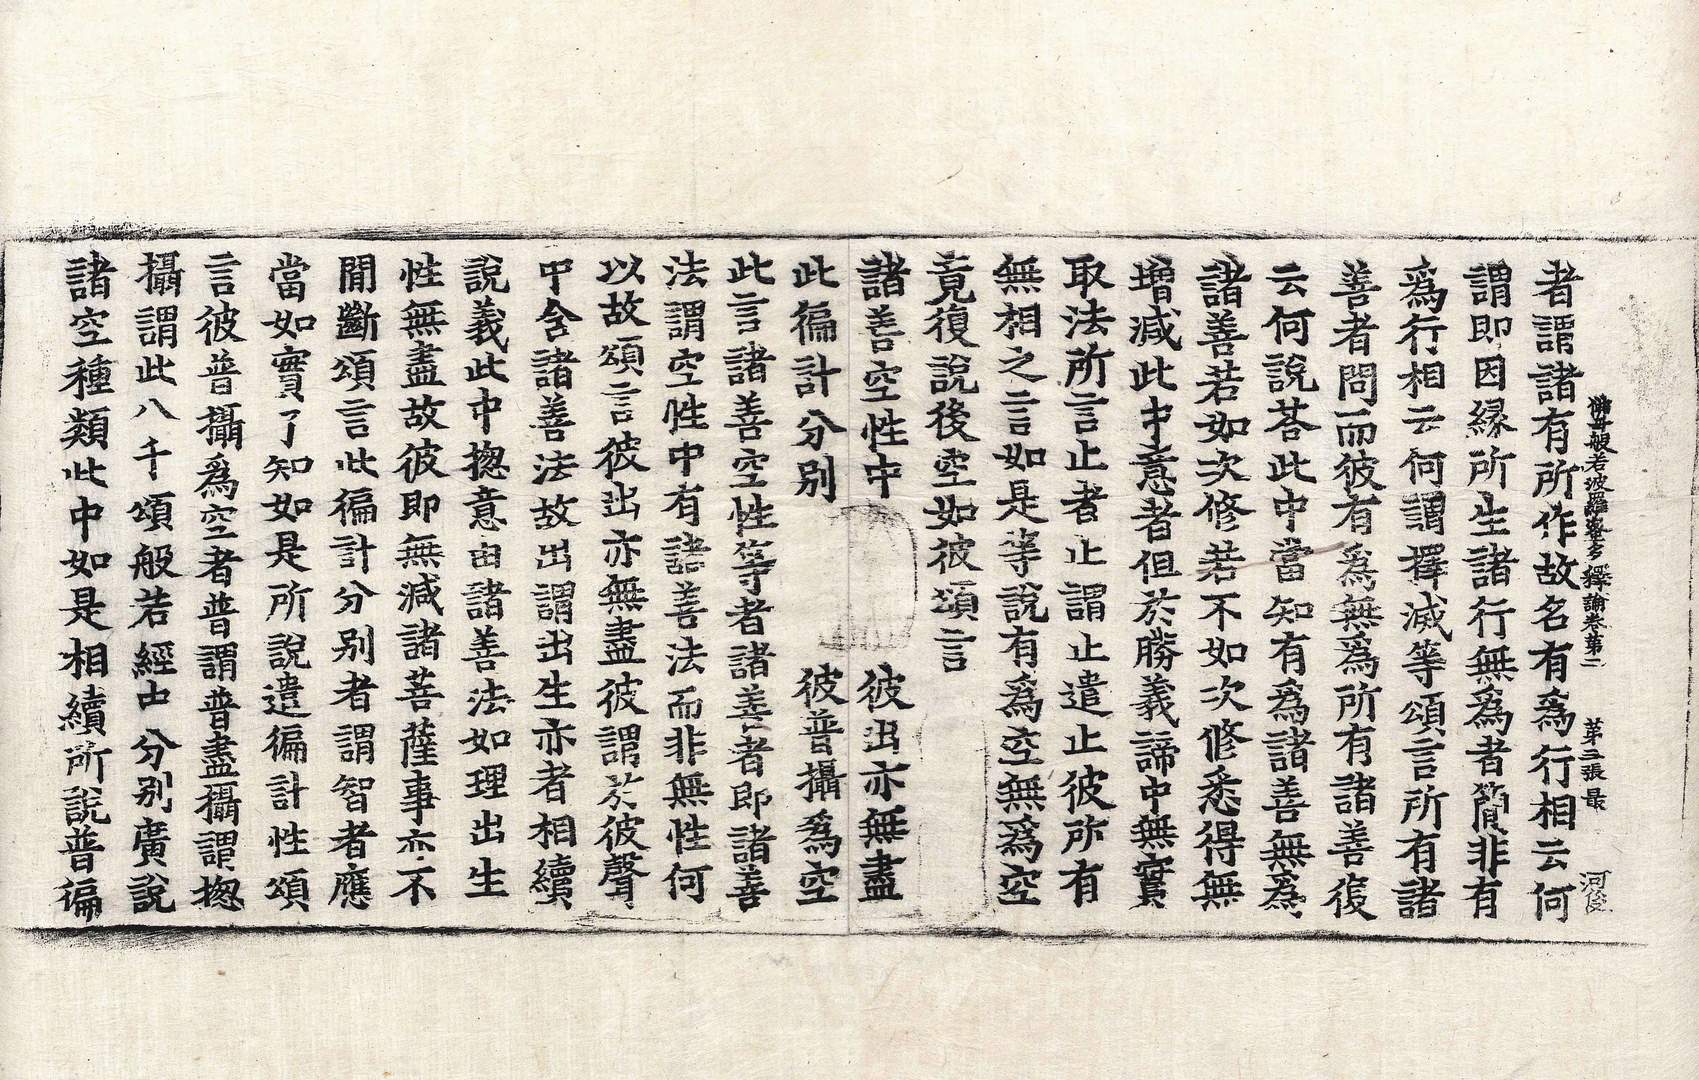 者謂諸有所作故名有爲行相云何
佛母般若波羅蜜多釋論卷第二 第三張 最 河俊
謂即因緣所生諸行無爲者簡非有
爲行相云何謂擇滅等頌言所有諸
善者問而彼有爲無爲所有諸善復
云何說荅此中當知有爲諸善無爲
諸善若如次修若不如次修悉得無
增減此中意者但於勝義諦中無實
取法所言止者止謂止遣止彼所有
無相之言如是等說有爲空無爲空
竟復說後空如彼頌言
諸善空性中 彼出亦無盡
此徧計分別 彼普攝爲空
此言諸善空性等者諸善者即諸善
法謂空性中有諸善法而非無性何
以故頌言彼出亦無盡彼謂於彼聲
中含諸善法故出謂出生亦者相續
說義此中揔意由諸善法如理出生
性無盡故彼即無減諸菩薩事亦不
閒斷頌言此徧計分別者謂智者應
當如實了知如是所說遣徧計性頌
言彼普攝爲空者普謂普盡攝謂揔
攝謂此八千頌般若經中分別廣說
諸空種類此中如是相續所說普徧